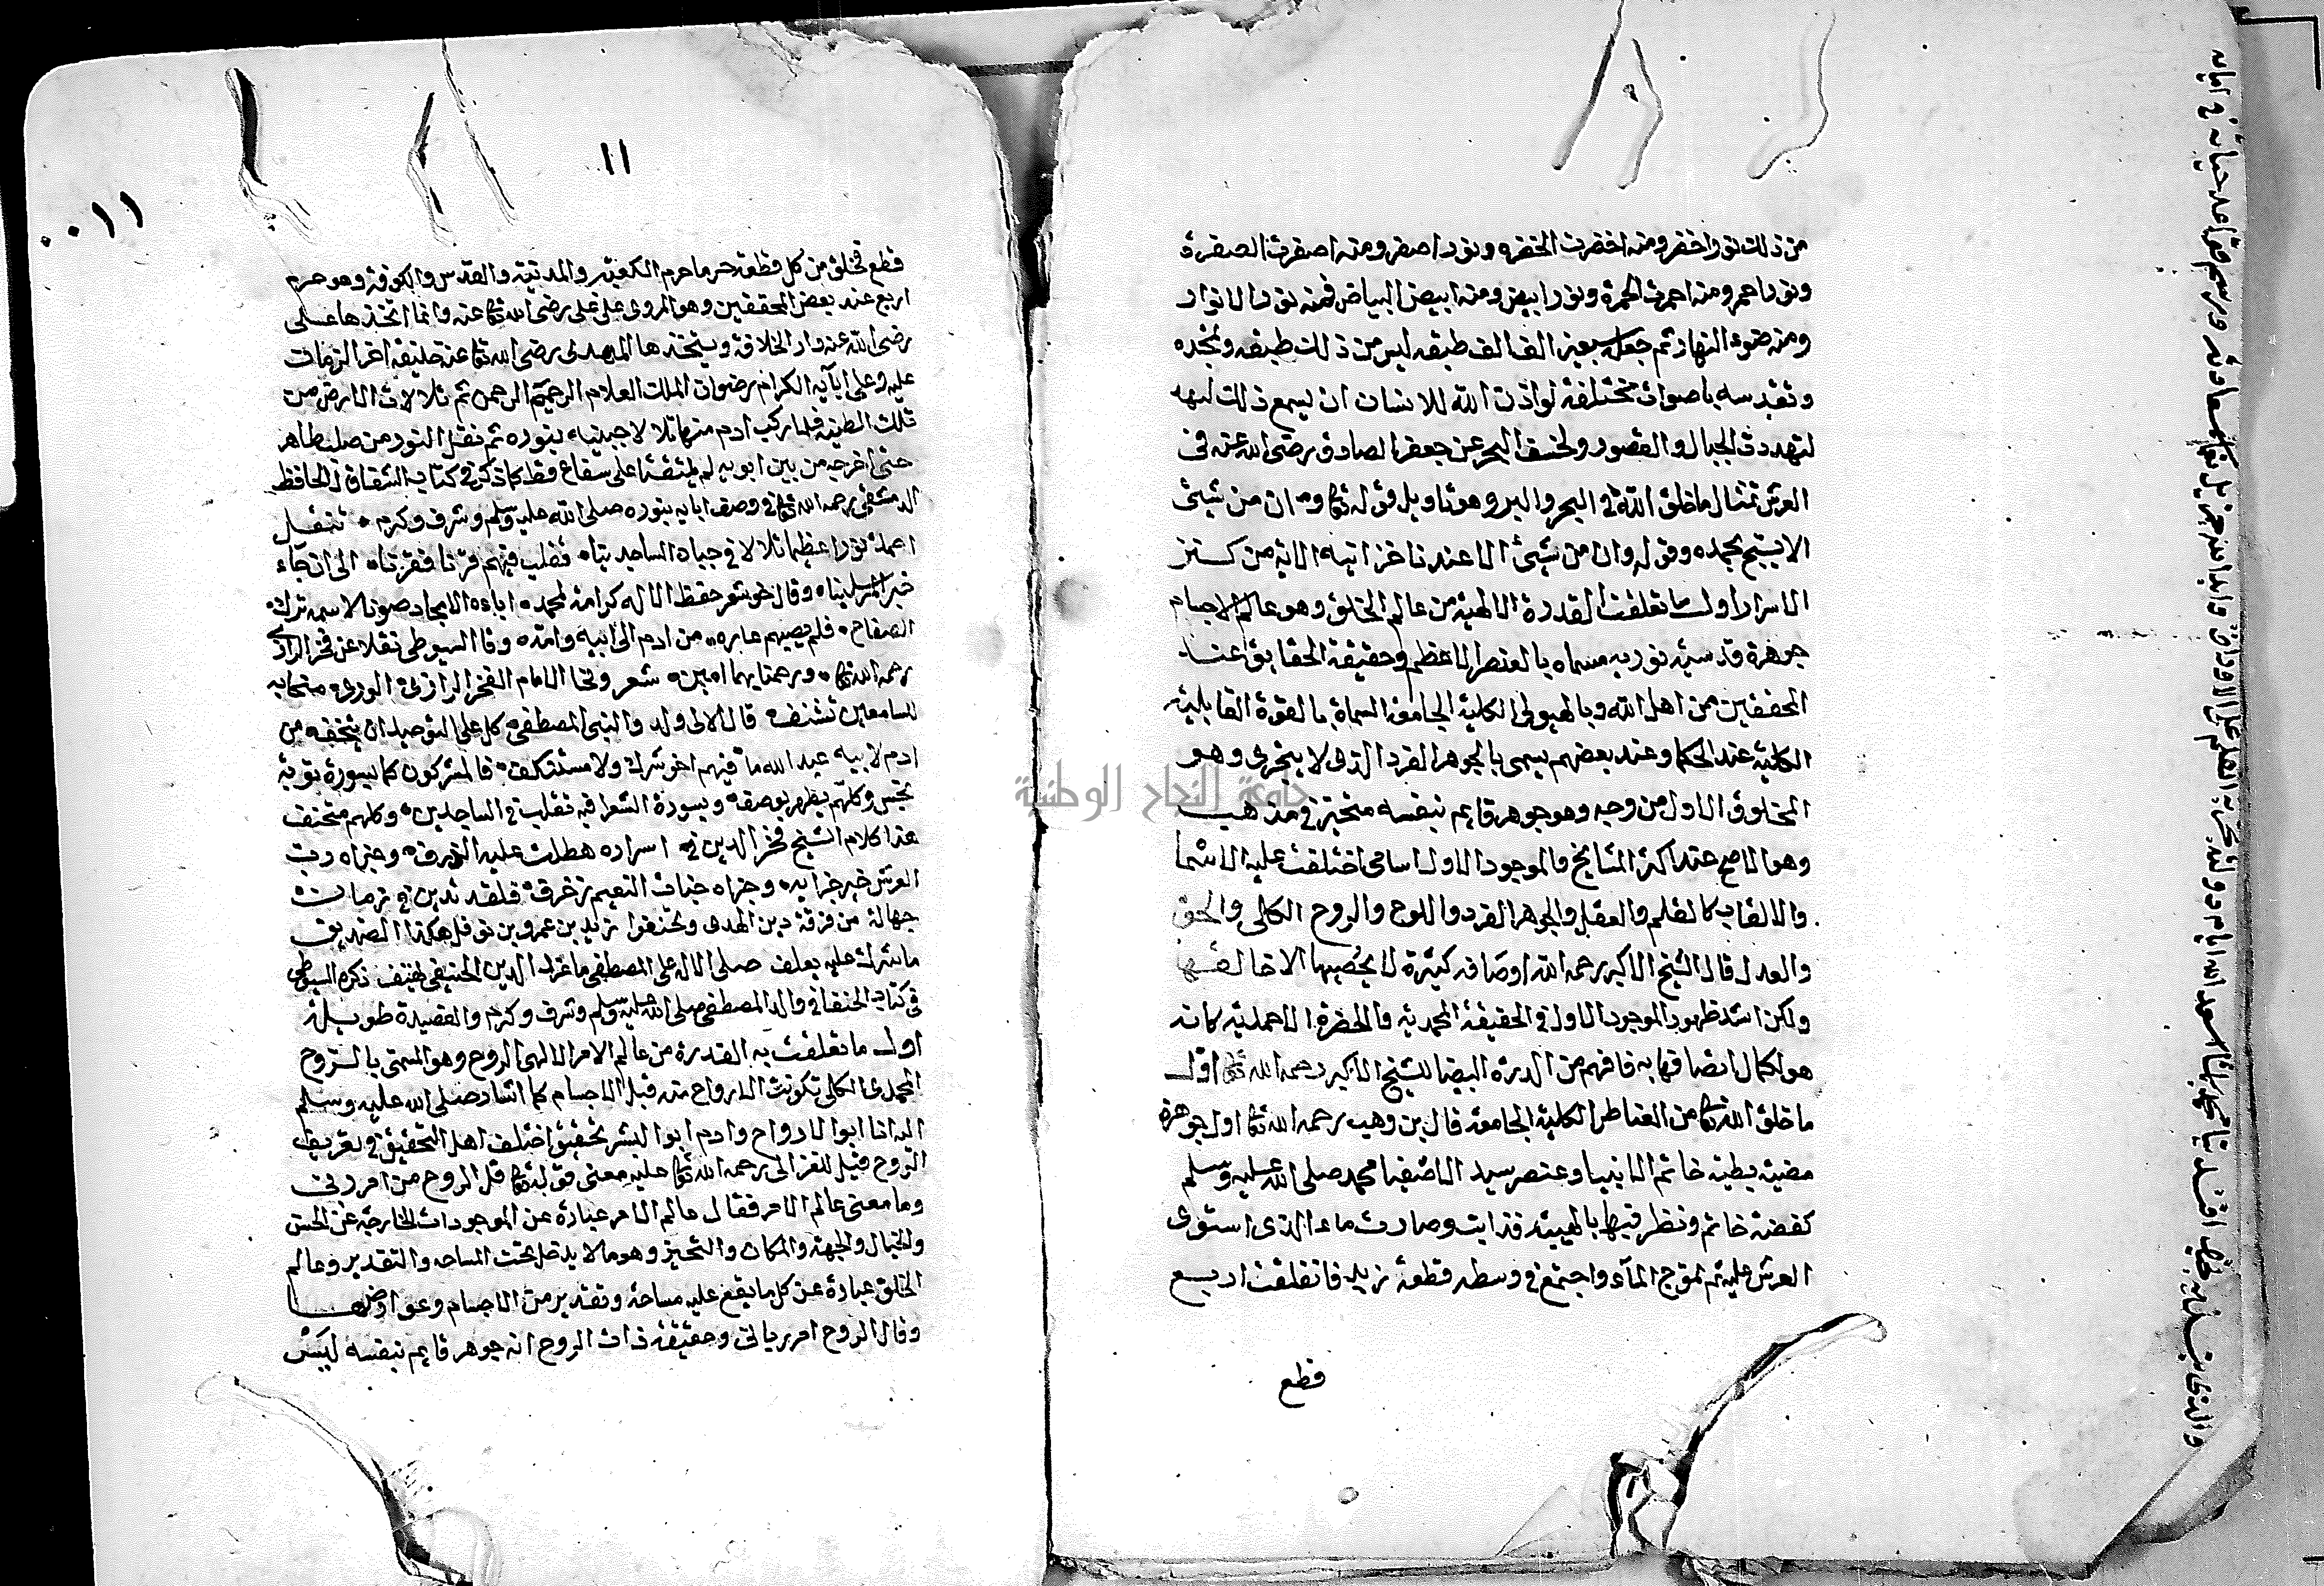 من ذلك نور اخضر ومنه اخضرت الخضره ونور اصفر ومنه اصفرت الصفرة
ونور احمر ومنه احمرت الحمرة ونور ابيض ومنه ابيض البياض فمنه نور الانوار
ومنه ضوء النهار ثم جعله سبعين الف الف طبقه ليس من ذلك طبقه وتحمده
وتقدسه باصوات مختلفة لو اذن الله للانسان ان يسمع ذلك
لتهددت الجبال والقصور ولخسف البحر عن جعفر الصادق رضى الله عنه في
العرش تمثال ما خلق الله في البحر والبر وهو تاويل قوله تعالى وان من شيئ
الا يسبح بحمده وقوله وان من شيئ الا عندنا خزاينه الاية من كنز
الاسرار اول ما تعلقت القدرة الالهية من عالم الخلق وهو عالم الاجسام
جوهرة قدسية نوريه مسماه بالعنصر الاعظم وحقيقة الحقايق عند
المحققين من اهل الله وبالهيولى الكلية الجامعة المسماة بالقوة القابلية
الكلية عند الحكما وعند بعضهم يسمى بالجوهر الفرد الذى لا يتجزى وهو
المخلوق الاول من وجه وهو جوهر قايم بنفسه متحيز في مذهب
وهو الاصح عند اكثر المشايخ فالموجود الاول اسامى اختلفت عليه الاسما
والالقاب كالقلم والعقل والجوهر الفرد واللوح والروح الكلى والحق
والعدل قال الشيخ الاكبر رحمه الله اوصافه كثيرة لا يحصيها الا خالقها
ولكن اشد ظهور الموجود الاول في الحقيقة المحمدية والحضرة الاحمدية كانه
هو لكمال اتصافها به فافهم من الدرة البيضا للشيخ الاكبر رحمه الله تعالى اول
ما خلق الله تعالى من العناصر الكلية الجامعة قال بن وهب رحمه الله تعالى اول جوهرة
مضيئة بطينة خاتم الانبيا وعنصر سيد الاصفيا محمد صلى الله عليه وسلم
كفضة خاتم ونظر فيها بالهيبة فذابت وصارت ماء الذى استوى
العرش عليه ثم تموج الماء واجتمع في وسطه قطعة زبد فانفلقت اربع
قطع
١١
٠٠١١
قطع فخلق من كل قطعة حرما حرم الكعبة والمدينة والقدس والكوفة وهو حرم
اربع عند بعض المحققين وهو المروى على على رضى الله تعالى عنه وانما اتخذها على
رضى الله عنه دار الخلافة ويتخذها المهدى رضى الله تعالى عنه خليفة اخر الزمان
عليه وعلى ابآيه الكرام رضوان الملك العلام الرحيم الرحمن ثم تلالات الارض من
تلك الطينة فلما ركب ادم منها تلالا جبينه بنوره ثم نقل النور من صلب طاهر
حتى اخرجه من بين ابويه لم يلتقيا على سفاح قط كما ذكره في كتاب الشقاق للحافظ
الدمشقى رحمه الله تعالى في وصف ابايه بنوره صلى الله عليه وسلم وشرف وكرم تنقل
احمد نورا عظيما تلالا في جباه الساجدينا تقلب فيهم قرنا فقرنا الى ان جاء
خير المرسلينا وقال اخو شعر حفظ الاله كرامة لمحمد اباءه الامجاد صونا لاسمه ترك
السفاح فلم يصبهم عاره من ادم الى ابيه وامه وقا السيوطى نقلا عن فخر الرازى
رحمه الله تعالى ورحمنا بهما امين شعر ونحا الامام الفخر الرازى الورى منحا به
للسامعين تشنف قال الالى ولد والنبى المصطفى كل على التوحيد ان يتحنف من
ادم لابيه عبد الله ما فيهم اخو شرك ولا مستنكف فالمشركون كما بسورة توبة
نجس وكلهم بظهر يوصف وبسورة الشعرا فيه تقلب في الساجدين وكلهم متحنف
هذا كلام الشيخ فخر الدين في اسراره هطلت عليه الذرف وجزاه رب
العرش خير جزايه وجزاه جنات النعيم تزخرف فلقد تدين في زمان
جهالة من فرقة دين الهدى وتحنفوا زيد بن عمرو بن نوفل هكذا الصديق
ما شرك عليه يعكف صلى الاله على المصطفى ما غرد الدين الحنيفى لهتف ذكره السيوطى
في كتاب الحنفا في والد المصطفى صلى الله عليه وسلم وشرف وكرم والقصيدة طويلة
اول ما تعلقت به القدرة من عالم الامر الالهى الروح وهو المسمى بالروح
المحمدى الكلى تكونت الارواح منه قبل الاجسام كما اشار صلى الله عليه وسلم
اليه انا ابو الارواح وادم ابو البشر تحقيق اختلف اهل التحقيق في تعريف
الروح قيل للغزالى رحمه الله تعالى عليه معنى قوله تعالى قل الروح من امر ربى
وما معنى عالم الامر فقال عالم الامر عبارة عن الموجودات الخارجة عن الحس
والخيال والجهة والمكان والتحيز وهو ما لا يدخل تحت المساحه والتقدير وعالم
الخلق عبارة عن كل ما يقع عليه مساحة وتقدير من الاجسام وعوارضها
وقال الروح امر ربانى وحقيقة ذات الروح انه جوهر قايم بنفسه ليس
جامعة النجاح الوطنية